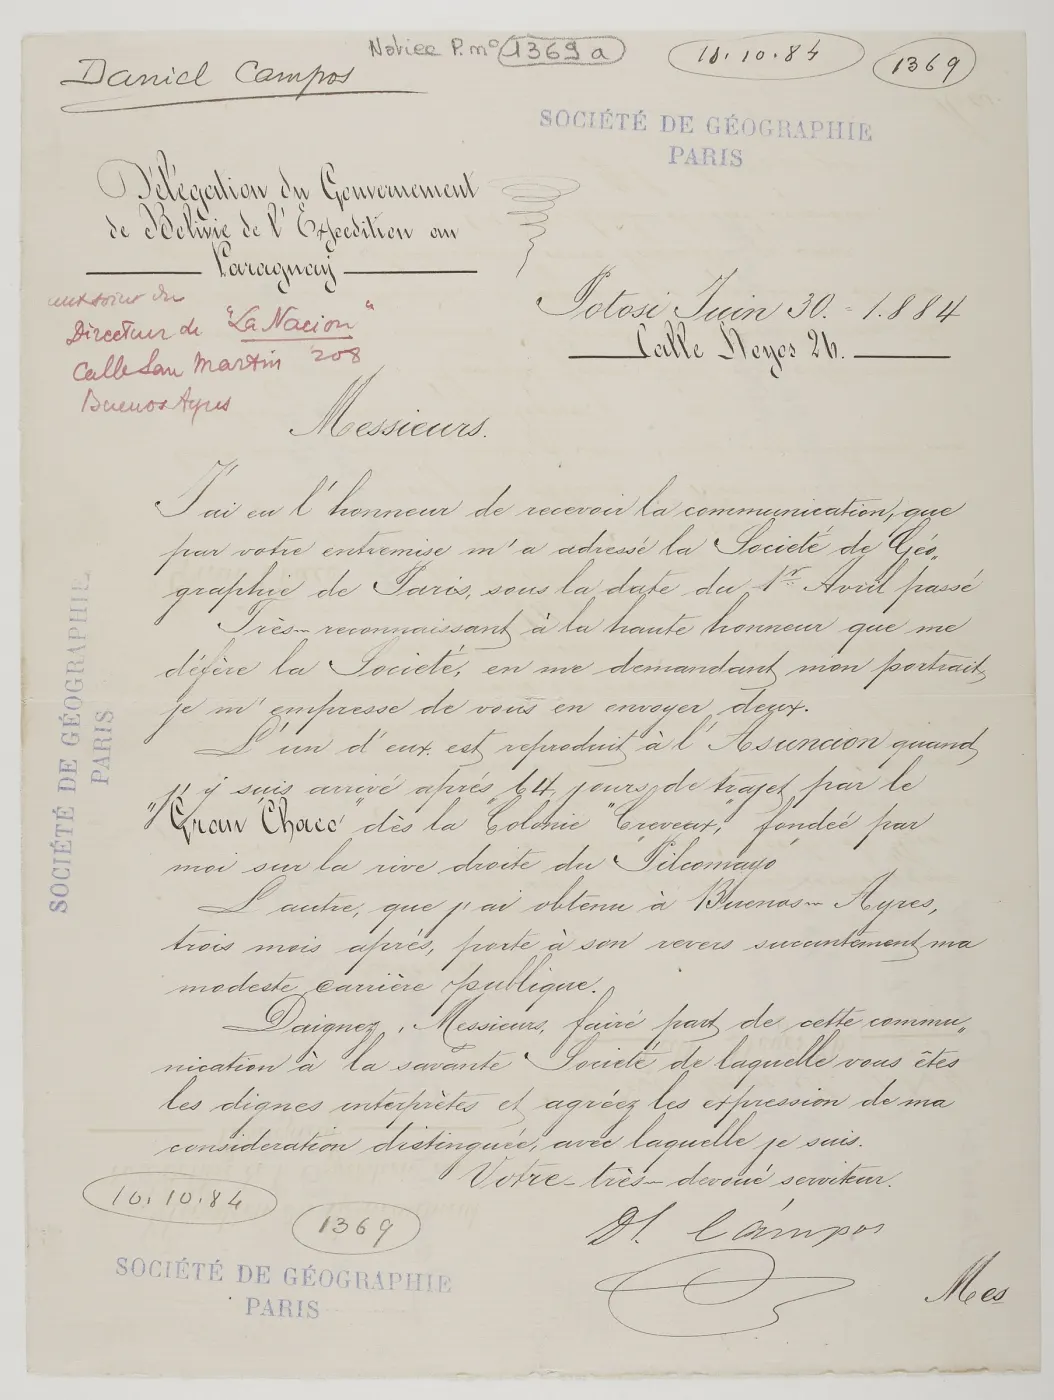 Notice P. nº 1369 a
10.10.84
1369
Daniel Campos
SOCIÉTÉ DE GÉOGRAPHIE
PARIS
Délégation du Gouvernement
de Bolivie de l'Expedition au
Paraguay
aux soins du
Directeur de "La Nacion"
Calle San Martin 208
Buenos Ayres
Potosi Juin 30. = 1.884
Calle Hoyos 26.
Messieurs.
J'ai eu l'honneur de recevoir la communication, que
par votre entremise m'a adressé la Societé de Géo„
graphie de Paris, sous la date du 1er Avril passé
Très-reconnaissant à la haute honneur que me
défère la Societé, en me demandant mon portrait,
je m'empresse de vous en envoyer deux.
L'un d'eux est reproduit à l'Asuncion quand
j'y suis arrivé aprés 64 jours de trajet par le
"Gran Chaco" dès la Colonie "Creveux," fondeé par
moi sur la rive droite du Pilcomayo
L'autre, que j'ai obtenu à Buenos-Ayres,
trois mois aprés, porte à son revers sucantement ma
modeste carrière publique.
Daignez, Messieurs, fairé part de cette commu„
nication à la savante Societé de laquelle vous êtes
les dignes interprètes et agréez les expression de ma
consideration distinguée, avec laquelle je suis.
Votre-très-devoué serviteur.
Dl. Campos
Mes
10.10.84
1369
SOCIÉTÉ DE GÉOGRAPHIE
PARIS
SOCIÉTÉ DE GÉOGRAPHIE
PARIS